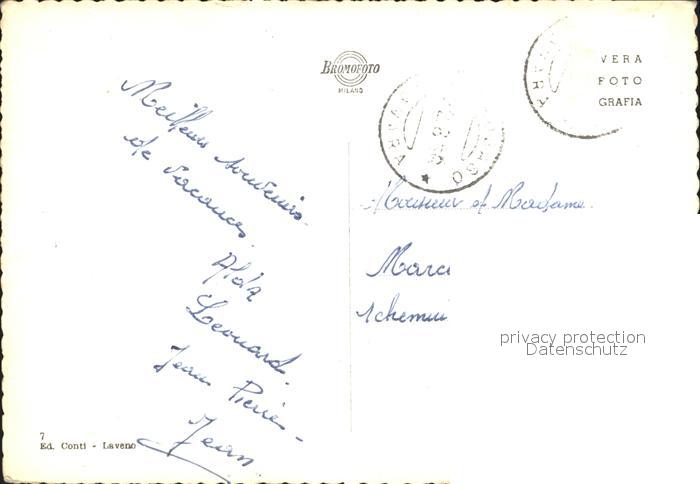 BROMOFOTO
MILANO
VERA
FOTO
GRAFIA
Meilleurs souvenirs
de vacances
Alda
Leonard.
Jean Pierre -
Jean
Monsieur et Madame.
Marci
privacy protection
Datenschutz
7
Ed. Conti - Laveno